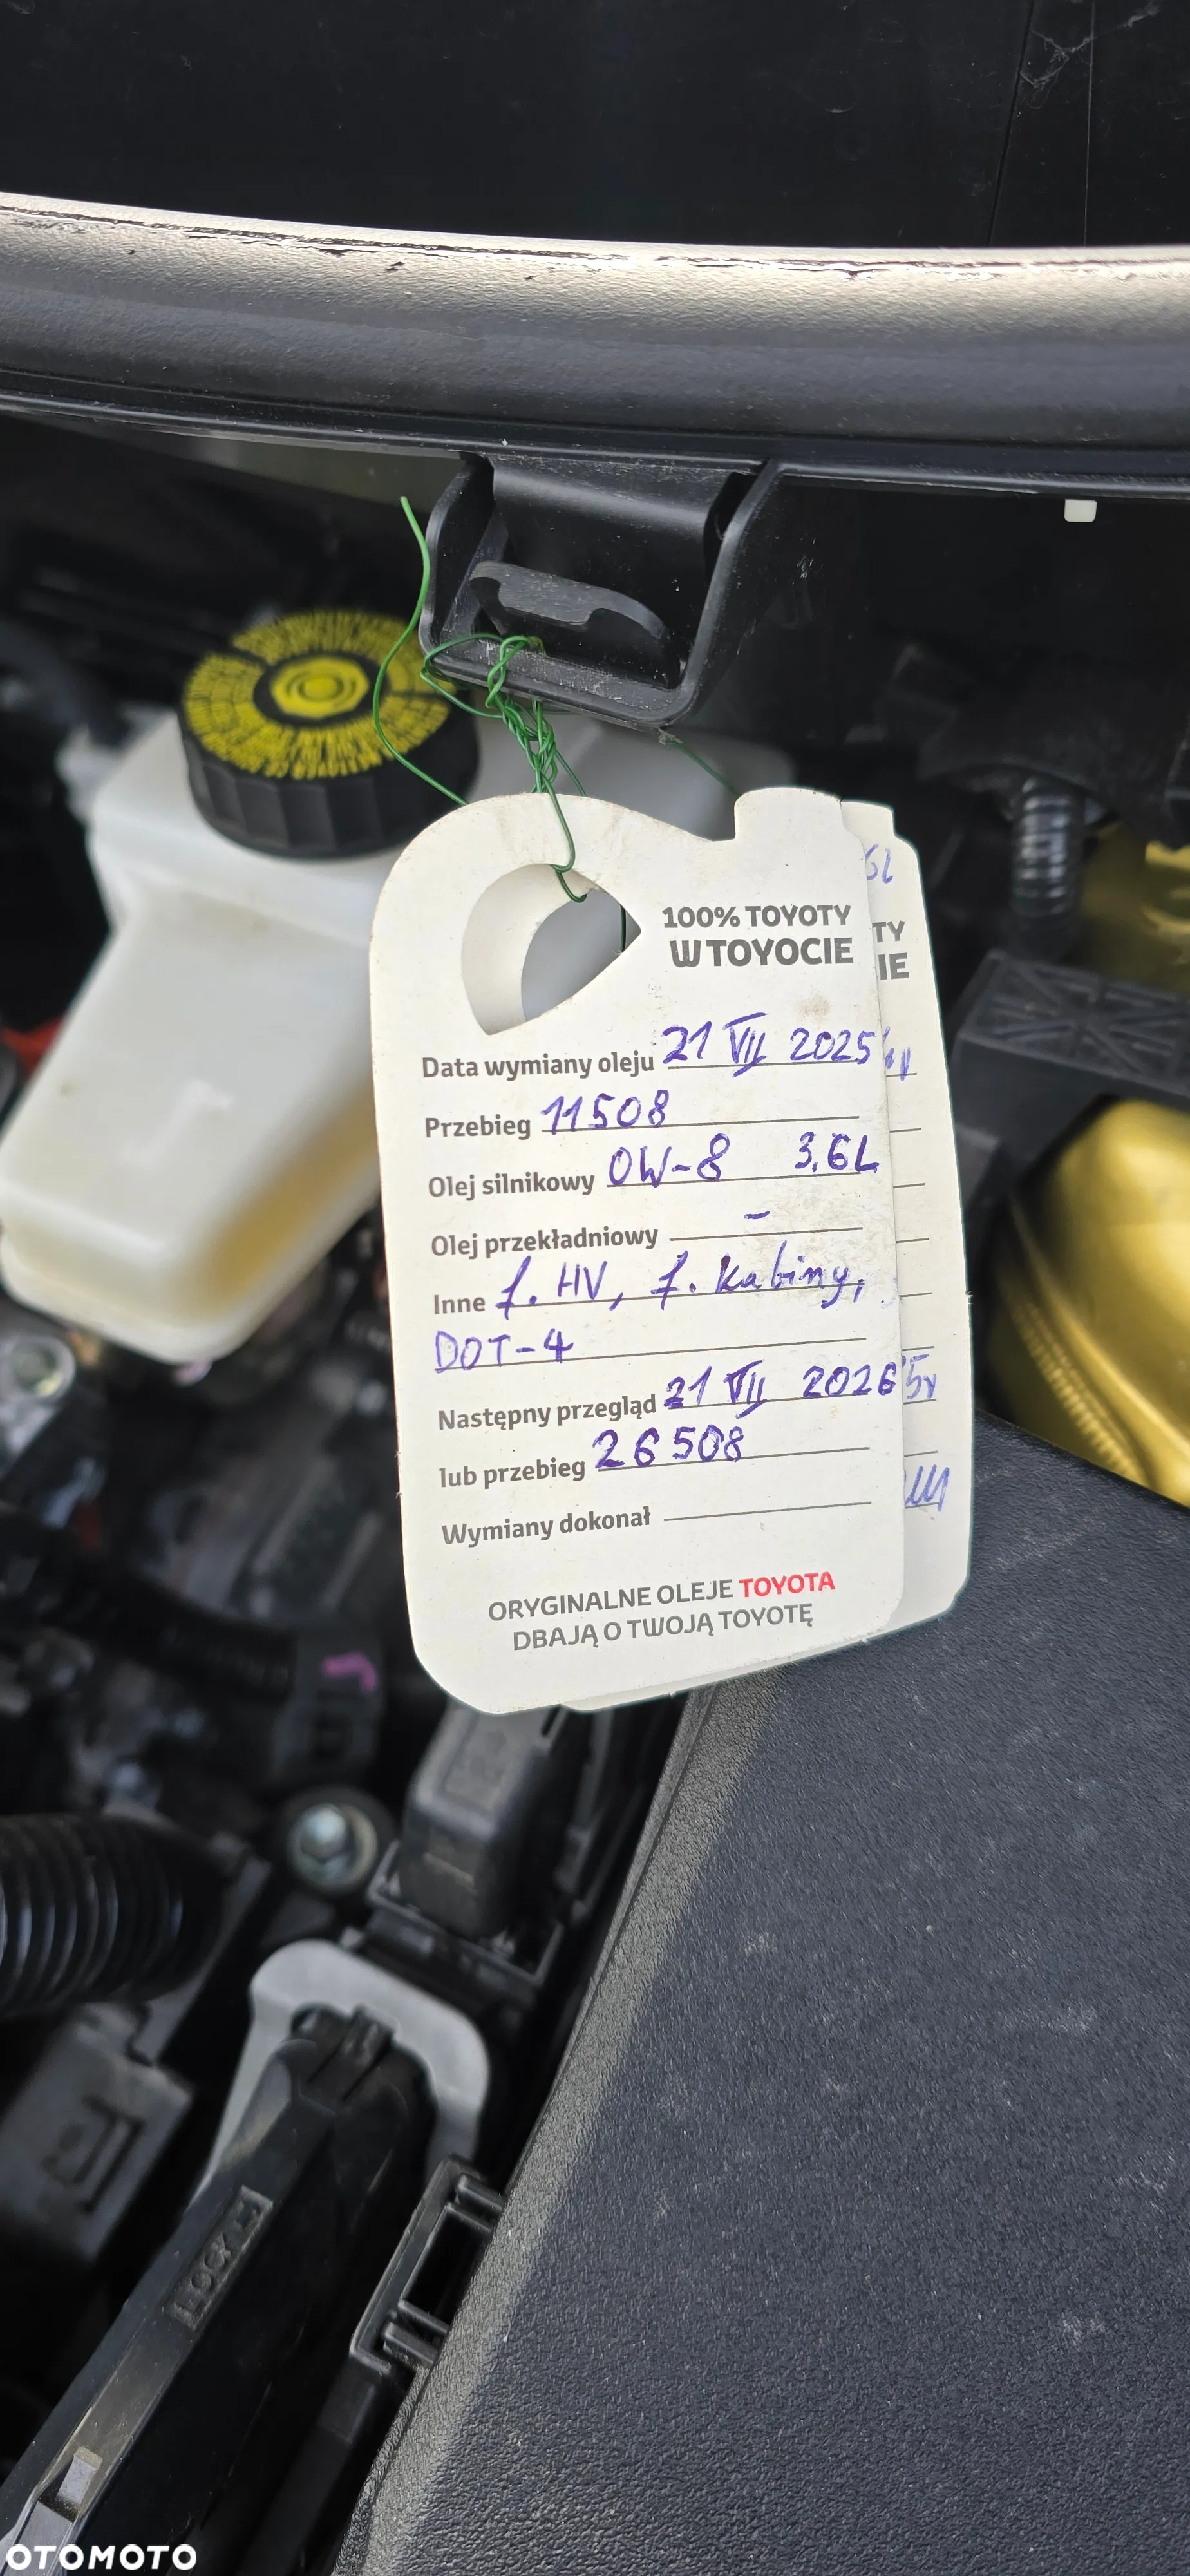 6L
100% TOYOTY
W TOYOCIE
TY
IE
Data wymiany oleju 21 VII 2025
Przebieg 11508
Olej silnikowy 0W-8 3.6L
Olej przekładniowy -
Inne f. HV, f. kabiny,
DOT-4
Następny przegląd 21 VII 2026
lub przebieg 26508
Wymiany dokonał
ORYGINALNE OLEJE TOYOTA
DBAJĄ O TWOJĄ TOYOTĘ
LOCK
OTOMOTO